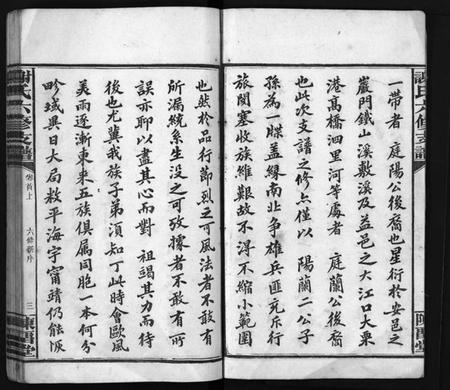 一帶者 庭陽公後裔也星衍於安邑之
巖門鐵山溪敷溪及益邑之大江口大栗
港高橋泗里河等處者 庭蘭公後裔
也此次支譜之修上僅以 陽蘭二公子
孫為一牒蓋緣南北爭雄兵匪充斥行
旅閡塞收族維艱故不得不縮小範圍
也然於品行節烈之可風法者不敢有
所漏統系生没之可攷據者不敢有所
誤亦聊以盡其心而對 祖竭其力而待
後也尤冀我族子弟須知丁此時會歐風
美雨逐漸東來五族俱屬同胞一本何分
畛域異日大局敉平海宇甯靖仍能恢
謝氏六修支譜
卷首上
六修新序
三
謝氏六修支譜